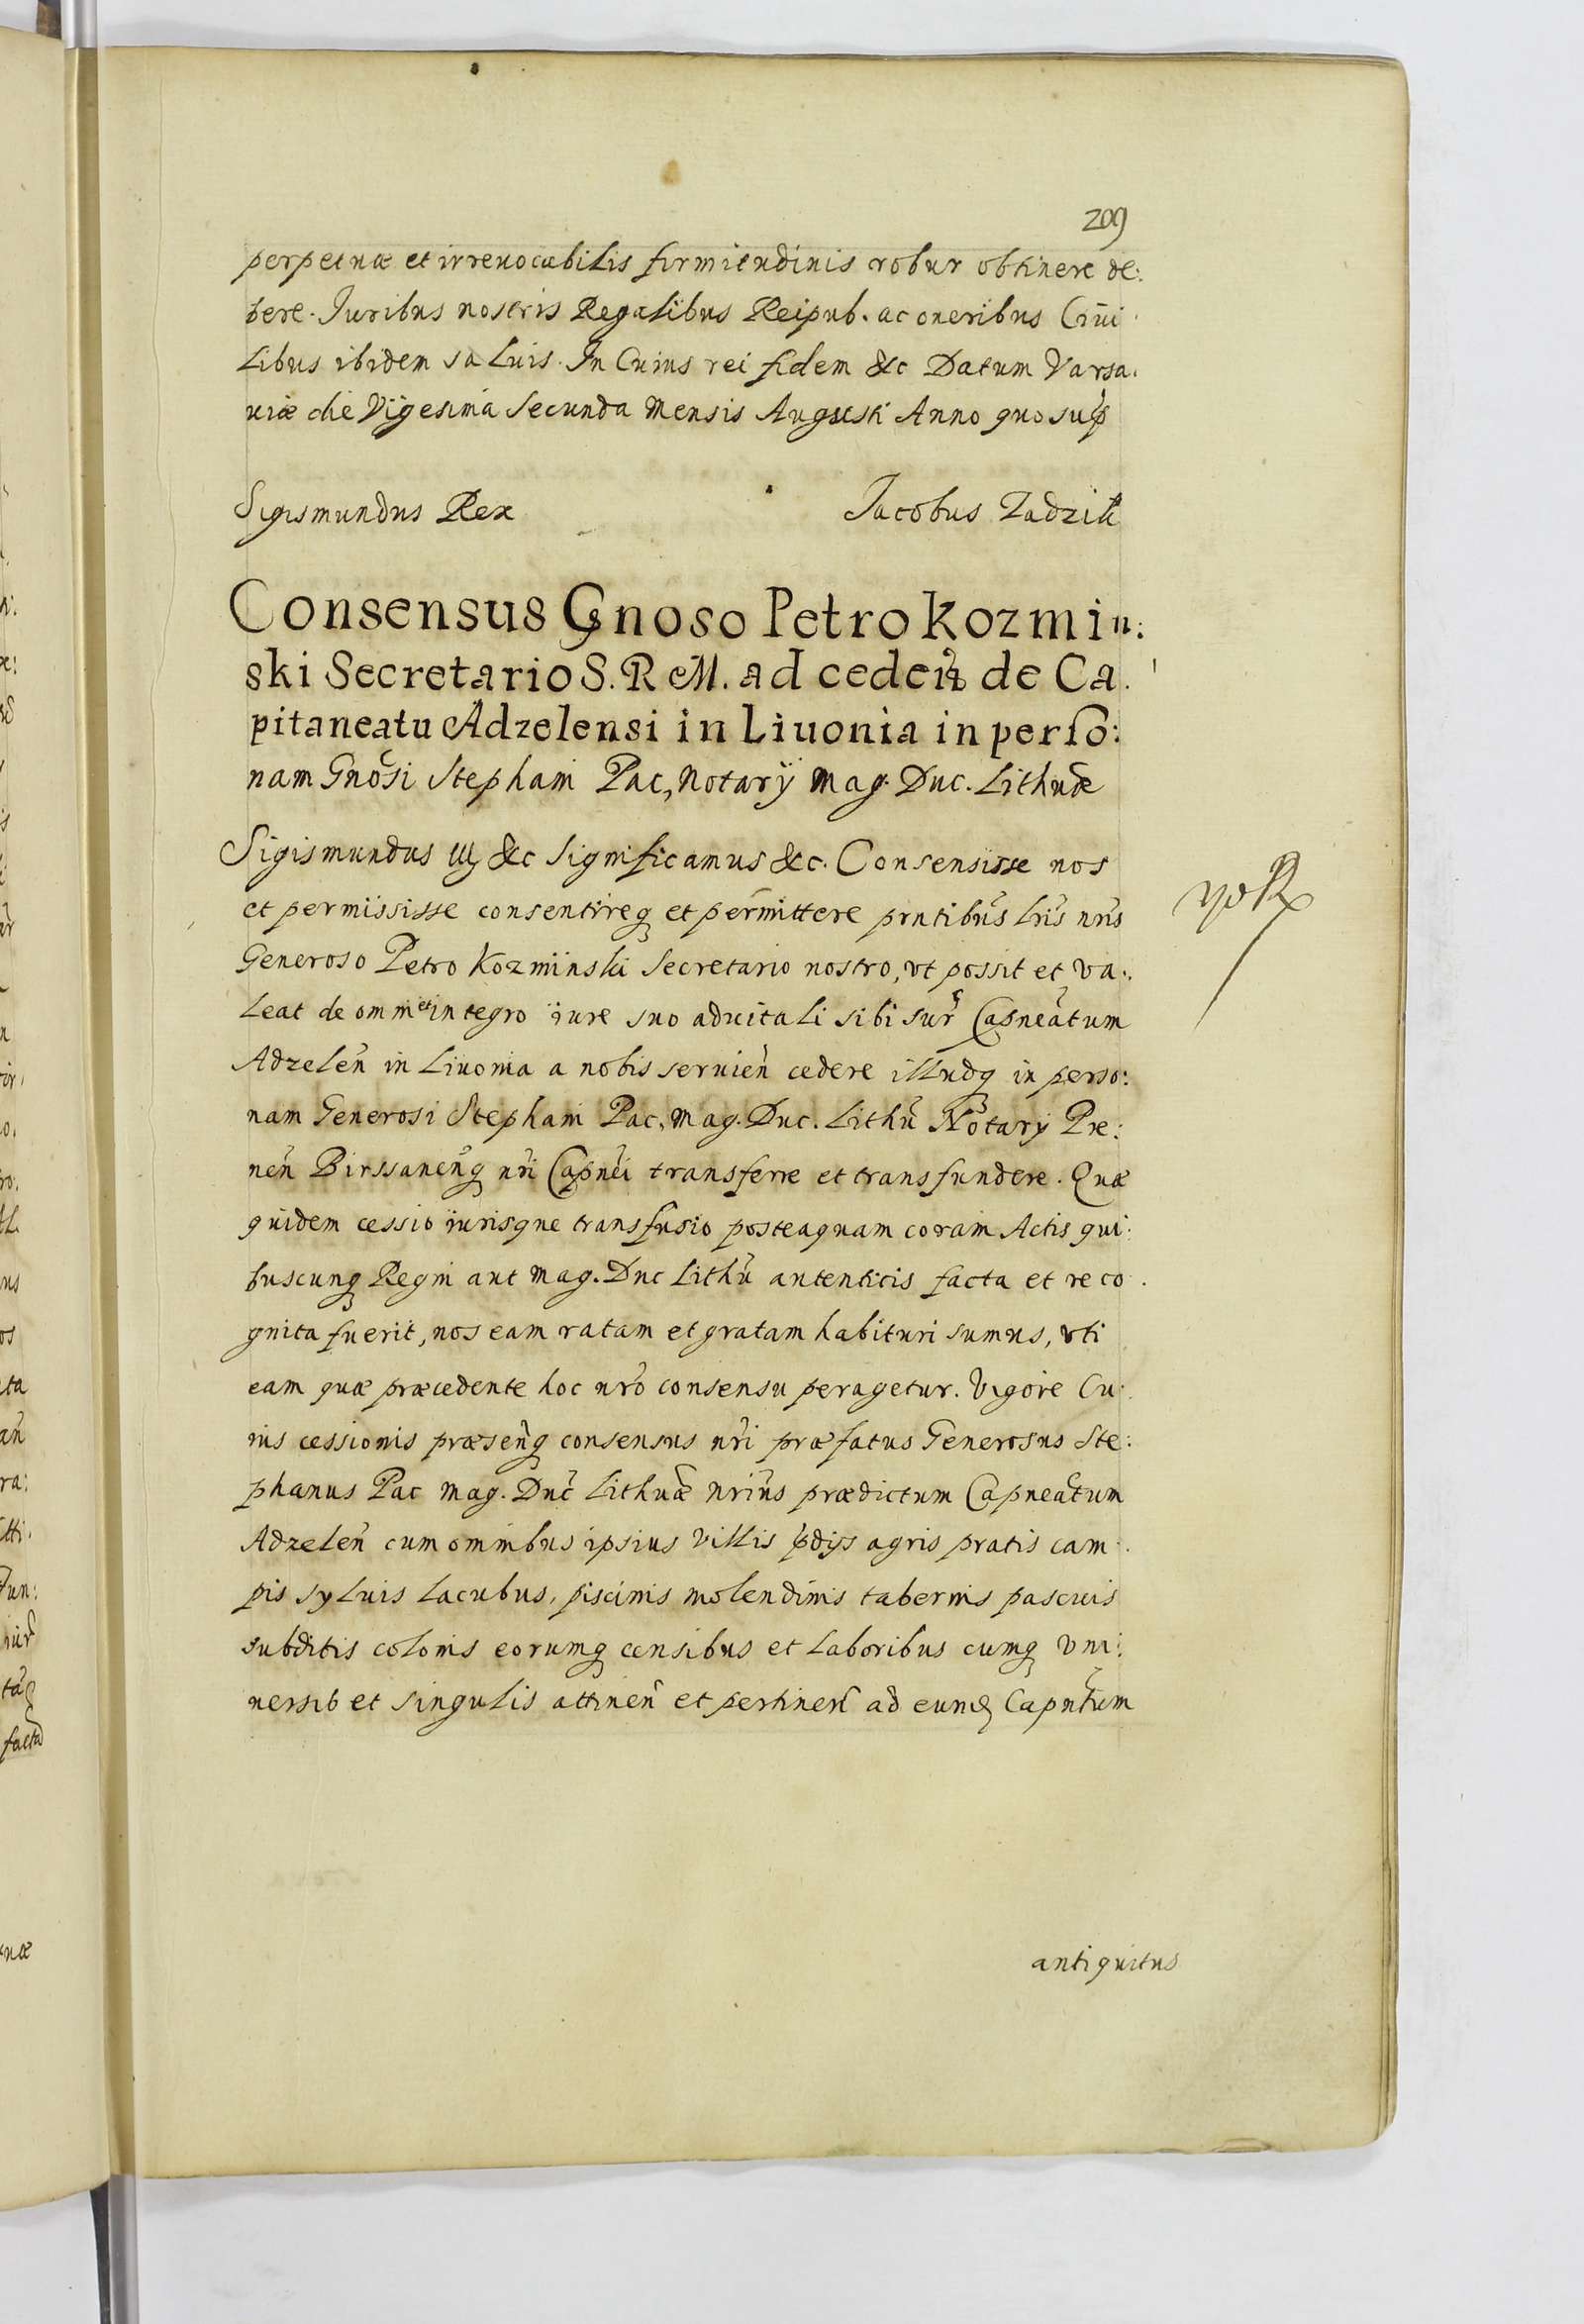 209
perpetuæ et irreuocabilis firmitudinis robur obtinere de:
bere. Juribus nostris Regalibus Reipub. ac oneribus Ciui
libus ibidem saluis. In Cuius rei fidem &c Datum Varsa.
uiæ die Vigesima Secunda Mensis Augusti Anno quo sup
Sigismundus Rex Jacobus Zadzik
Consensus Gnoso Petro Kozmin:
ski Secretario S. R M. ad ceden de Ca.
pitaneatu Adzelensi in Liuonia in perso:
nam Gnosi Stephani Pac, Notarÿ Mag. Duc. Lithuæ
Sigismundus &c Significamus &c. Consensisse nos
et permississe consentireq et permittere pntibus lris nris
Generoso Petro Kozminski Secretario nostro, vt possit et va:
leat de omni et integro iure suo aduitali sibi sur Capneatum
Adzelen in Liuonia a nobis seruien cedere illudq in perso:
nam Generosi Stephani Pac, Mag. Duc. Lithu Notarÿ Pre:
nen Birssanenq nri Capnei transferre et transfundere. Quæ
quidem cessio iurisque transfusio posteaquam coram Actis qui:
buscunq Regni aut Mag. Duc Lithu autenticis facta et reco
gnita fuerit, nos eam ratam et gratam habituri sumus, vti
eam quæ præcedente hoc nro consensu peragetur. Vigore Cu
ius cessionis præsenq consensus nri præfatus Generosus Ste:
phanus Pac Mag. Duc Lithuæ Nrius prædictum Capneatum
Adzelen cum omnibus ipsius Villis pdijs agris pratis cam
pis syluis lacubus, piscinis molendinis tabernis pascuis
subditis colonis eorumq censibus et laboribus cumq vni:
uersib et singulis attinen et pertinen ad eund Capntum
antiquitus